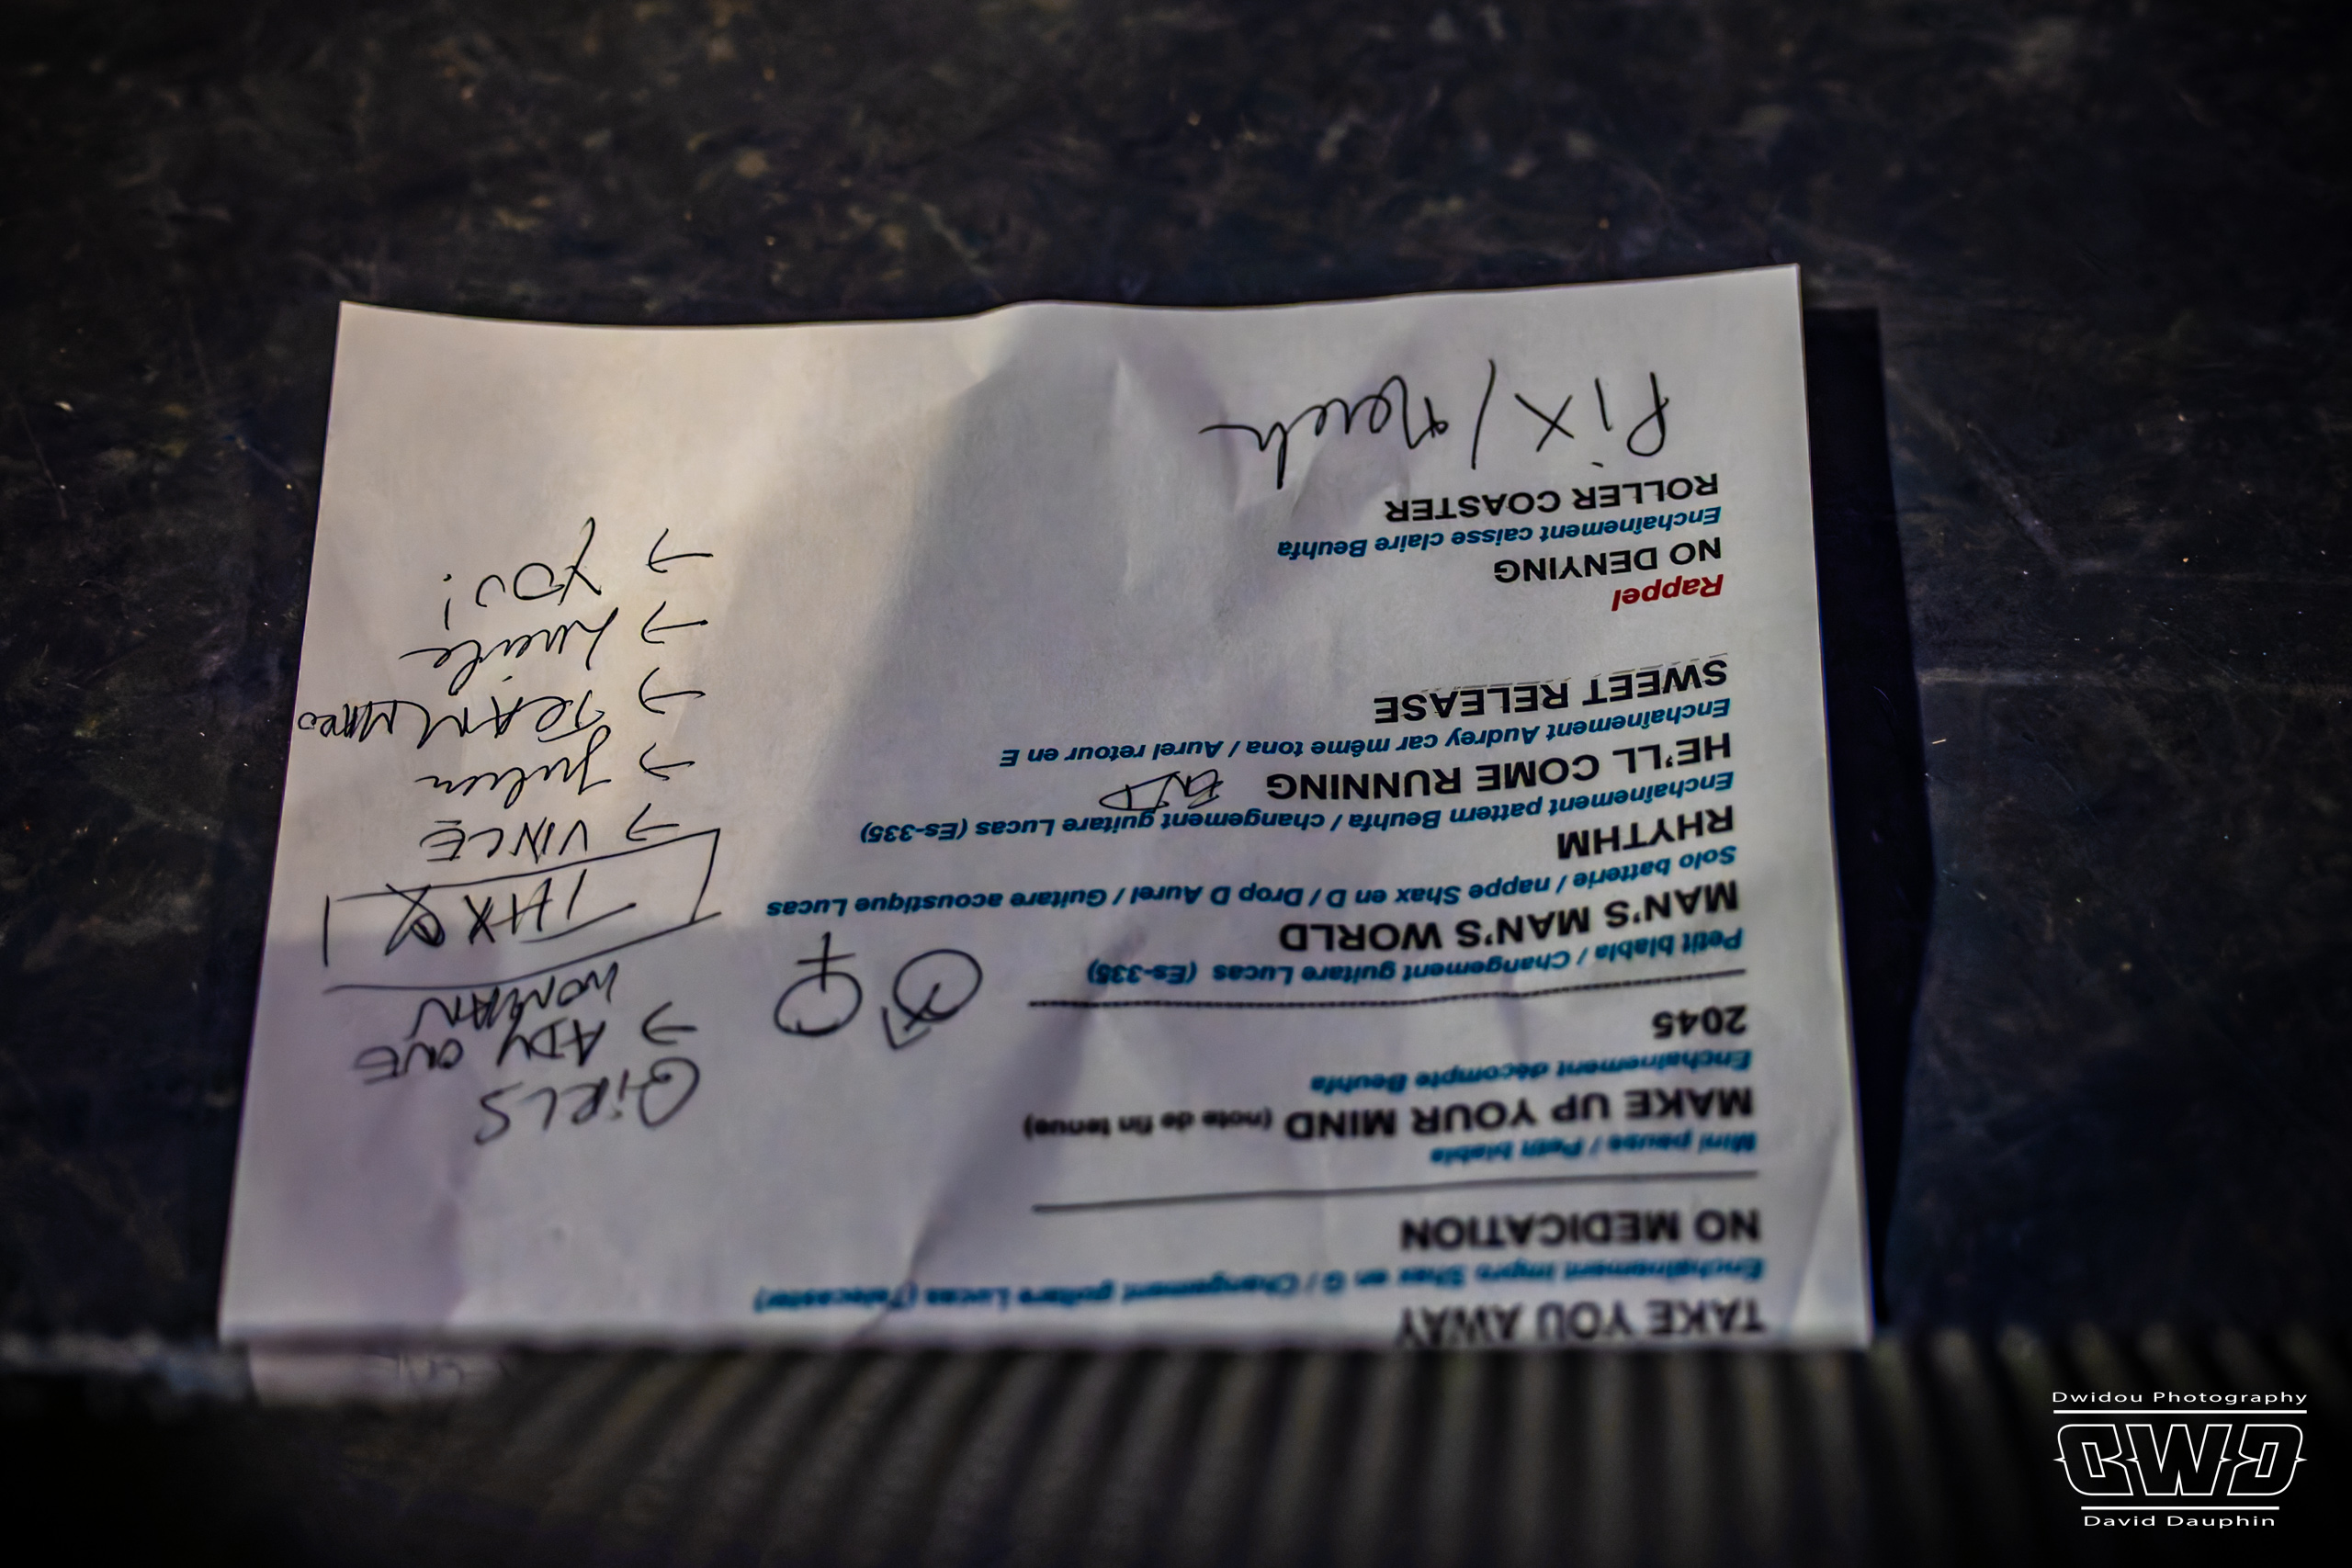 TAKE YOU AWAY
Enchaînement impro Shax en G / Changement guitare Lucas (Telecaster)
NO MEDICATION
Mini pause / Petit blabla
MAKE UP YOUR MIND (note de fin tenue)
Enchaînement décompte Beuhfa
2045
Petit blabla / Changement guitare Lucas (Es-335)
MAN'S MAN'S WORLD
Solo batterie / nappe Shax en D / Drop D Aurel / Guitare acoustique Lucas
RHYTHM
Enchaînement pattern Beuhfa / changement guitare Lucas (Es-335)
HE'LL COME RUNNING END
Enchaînement Audrey car même tona / Aurel retour en E
SWEET RELEASE
Rappel
NO DENYING
Enchaînement caisse claire Beuhfa
ROLLER COASTER
Pix / Merch
GiRLS
→ ADY OUE
WOMAN
THX
→ VINCE
→ Julien
→ TEAM
→ Lucile
→ YOU!
Dwidou Photography
DWD
David Dauphin